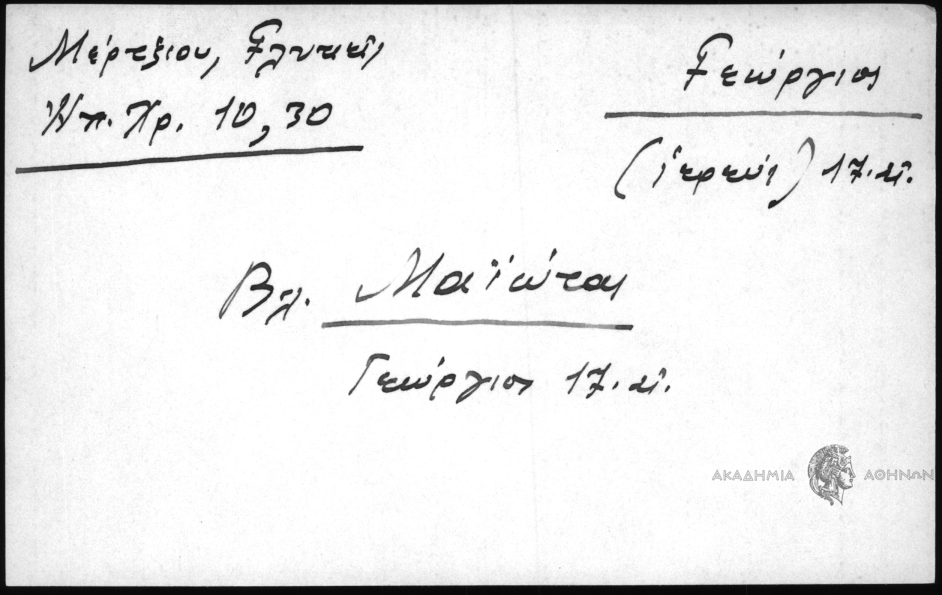 Μέρτζιου, Γλυκεῖς
Ἠπ. Χρ. 10, 30
Γεώργιος
(ἱερεύς) 17. αἰ.
Βλ. Μαϊώτας
Γεώργιος 17. αἰ.
ΑΚΑΔΗΜΙΑ ΑΘΗΝΩΝ